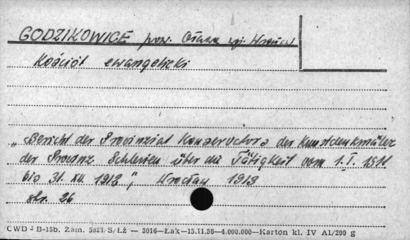 GODZIKOWICE pow. Oława woj. Wrocław
Kościół ewangelicki
„Bericht der Provinzial Konservators der Kunstdenkmäler
der Provinz Schlesien über die Tätigkeit vom 1.I. 1911
bis 31.XII 1913", Wrocław 1913
str. 26
CWD J B-15b. Zam. 5823/S/Łź — 3016—Łak—15.11.56—4.000.000—Karton kl. IV A1/200 g